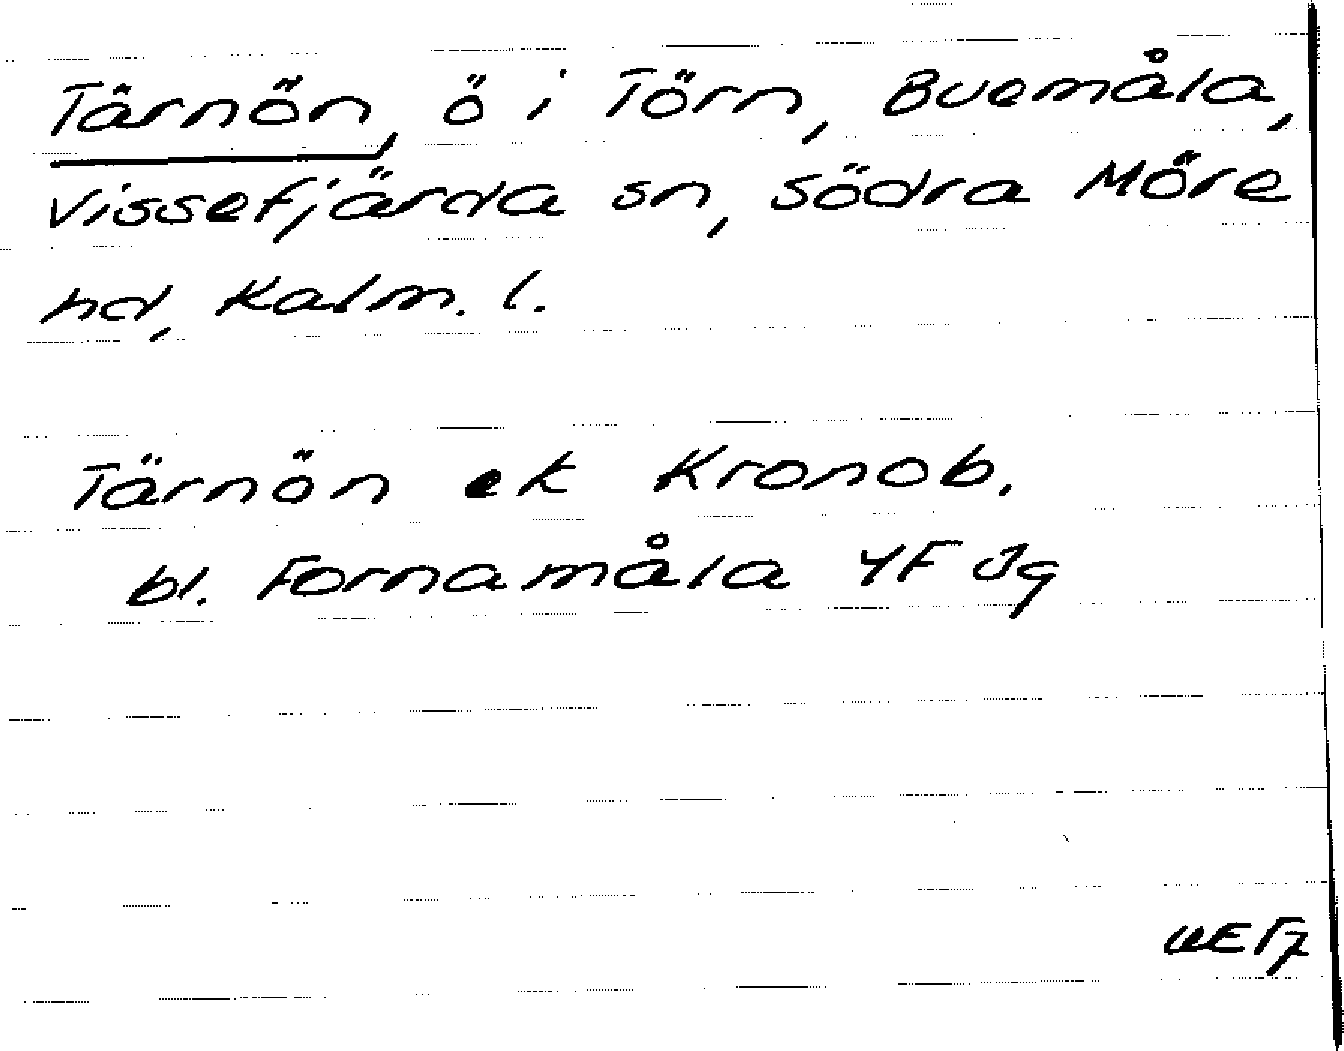 Tärnön, ö i Törn, Buemåla,
Vissefjärda sn, Södra Möre
hd, Kalm. l.
Tärnön ek Kronob.
bl. Fornamåla 4F